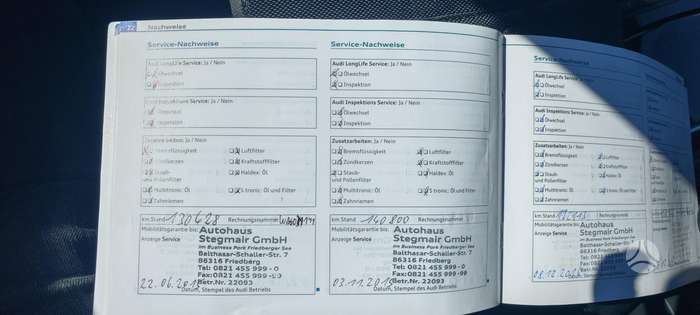 22 Nachweise
Service-Nachweise
Audi LongLife Service: Ja / Nein
Ölwechsel
Inspektion
Ja / Nein
Ölwechsel
Inspektion
Ja / Nein
Bremsflüssigkeit
Luftfilter
Zündkerzen
Kraftstofffilter
Staub-
und Pollenfilter
Haldex: Öl
Multitronic: Öl
S tronic: Öl und Filter
Zahnriemen
km Stand 130428 Rechnungsnummer
Mobilitätsgarantie bis:
Anzeige Service
Autohaus
Stegmair GmbH
im Business Park Friedberger See
Balthasar-Schaller-Str. 7
86316 Friedberg
Tel: 0821 455 999 - 0
Fax: 0821 455 999 -
Betr.Nr. 22093
22.06.
Datum, Stempel des Audi Betriebs
Service-Nachweise
Audi LongLife Service: Ja / Nein
Ölwechsel
Inspektion
Audi Inspektions Service: Ja / Nein
Ölwechsel
Inspektion
Zusatzarbeiten: Ja / Nein
Bremsflüssigkeit
Luftfilter
Zündkerzen
Kraftstofffilter
Staub-
und Pollenfilter
Haldex: Öl
Multitronic: Öl
S tronic: Öl und Filter
Zahnriemen
km Stand 140800 Rechnungsnummer
Mobilitätsgarantie bis:
Anzeige Service
Autohaus
Stegmair GmbH
im Business Park Friedberger See
Balthasar-Schaller-Str. 7
86316 Friedberg
Tel: 0821 455 999 - 0
Fax: 0821 455 999 -
Betr.Nr. 22093
03.11.
Datum, Stempel des Audi Betriebs
Service-Nachweise
Audi LongLife Service: Ja / Nein
Ölwechsel
Inspektion
Audi Inspektions Service: Ja / Nein
Ölwechsel
Inspektion
Zusatzarbeiten: Ja / Nein
Bremsflüssigkeit
Luftfilter
Zündkerzen
Kraftstofffilter
Staub-
und Pollenfilter
Haldex: Öl
Multitronic: Öl
S tronic: Öl und Filter
Zahnriemen
km Stand
Rechnungsnummer
Mobilitätsgarantie bis:
Anzeige Service
Autohaus
Stegmair GmbH
im Business Park Friedberger See
Balthasar-Schaller-Str. 7
86316 Friedberg
Tel: 0821 455 999
Fax: 0821 455 999
Betr.Nr. 22093
08.12.
Datum, Stempel des Audi Betriebs